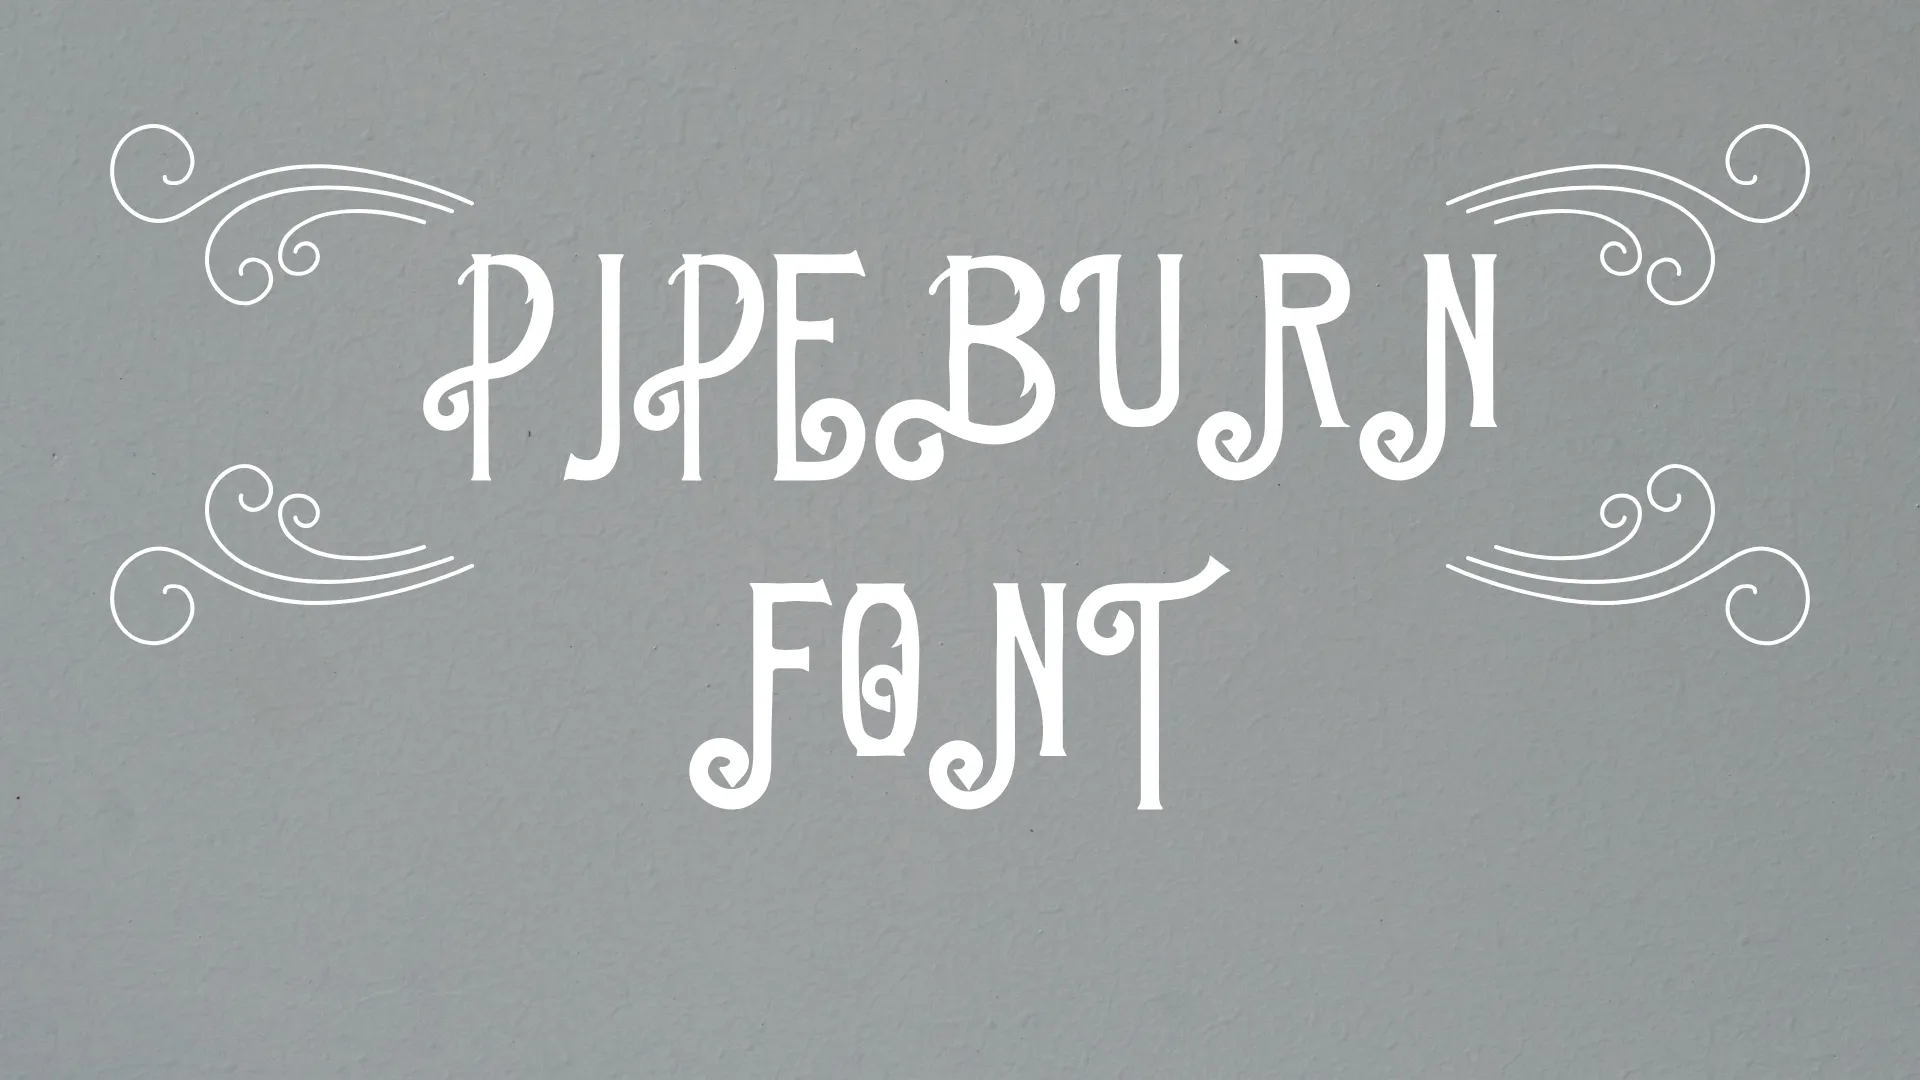 PIPEBURN
FONT